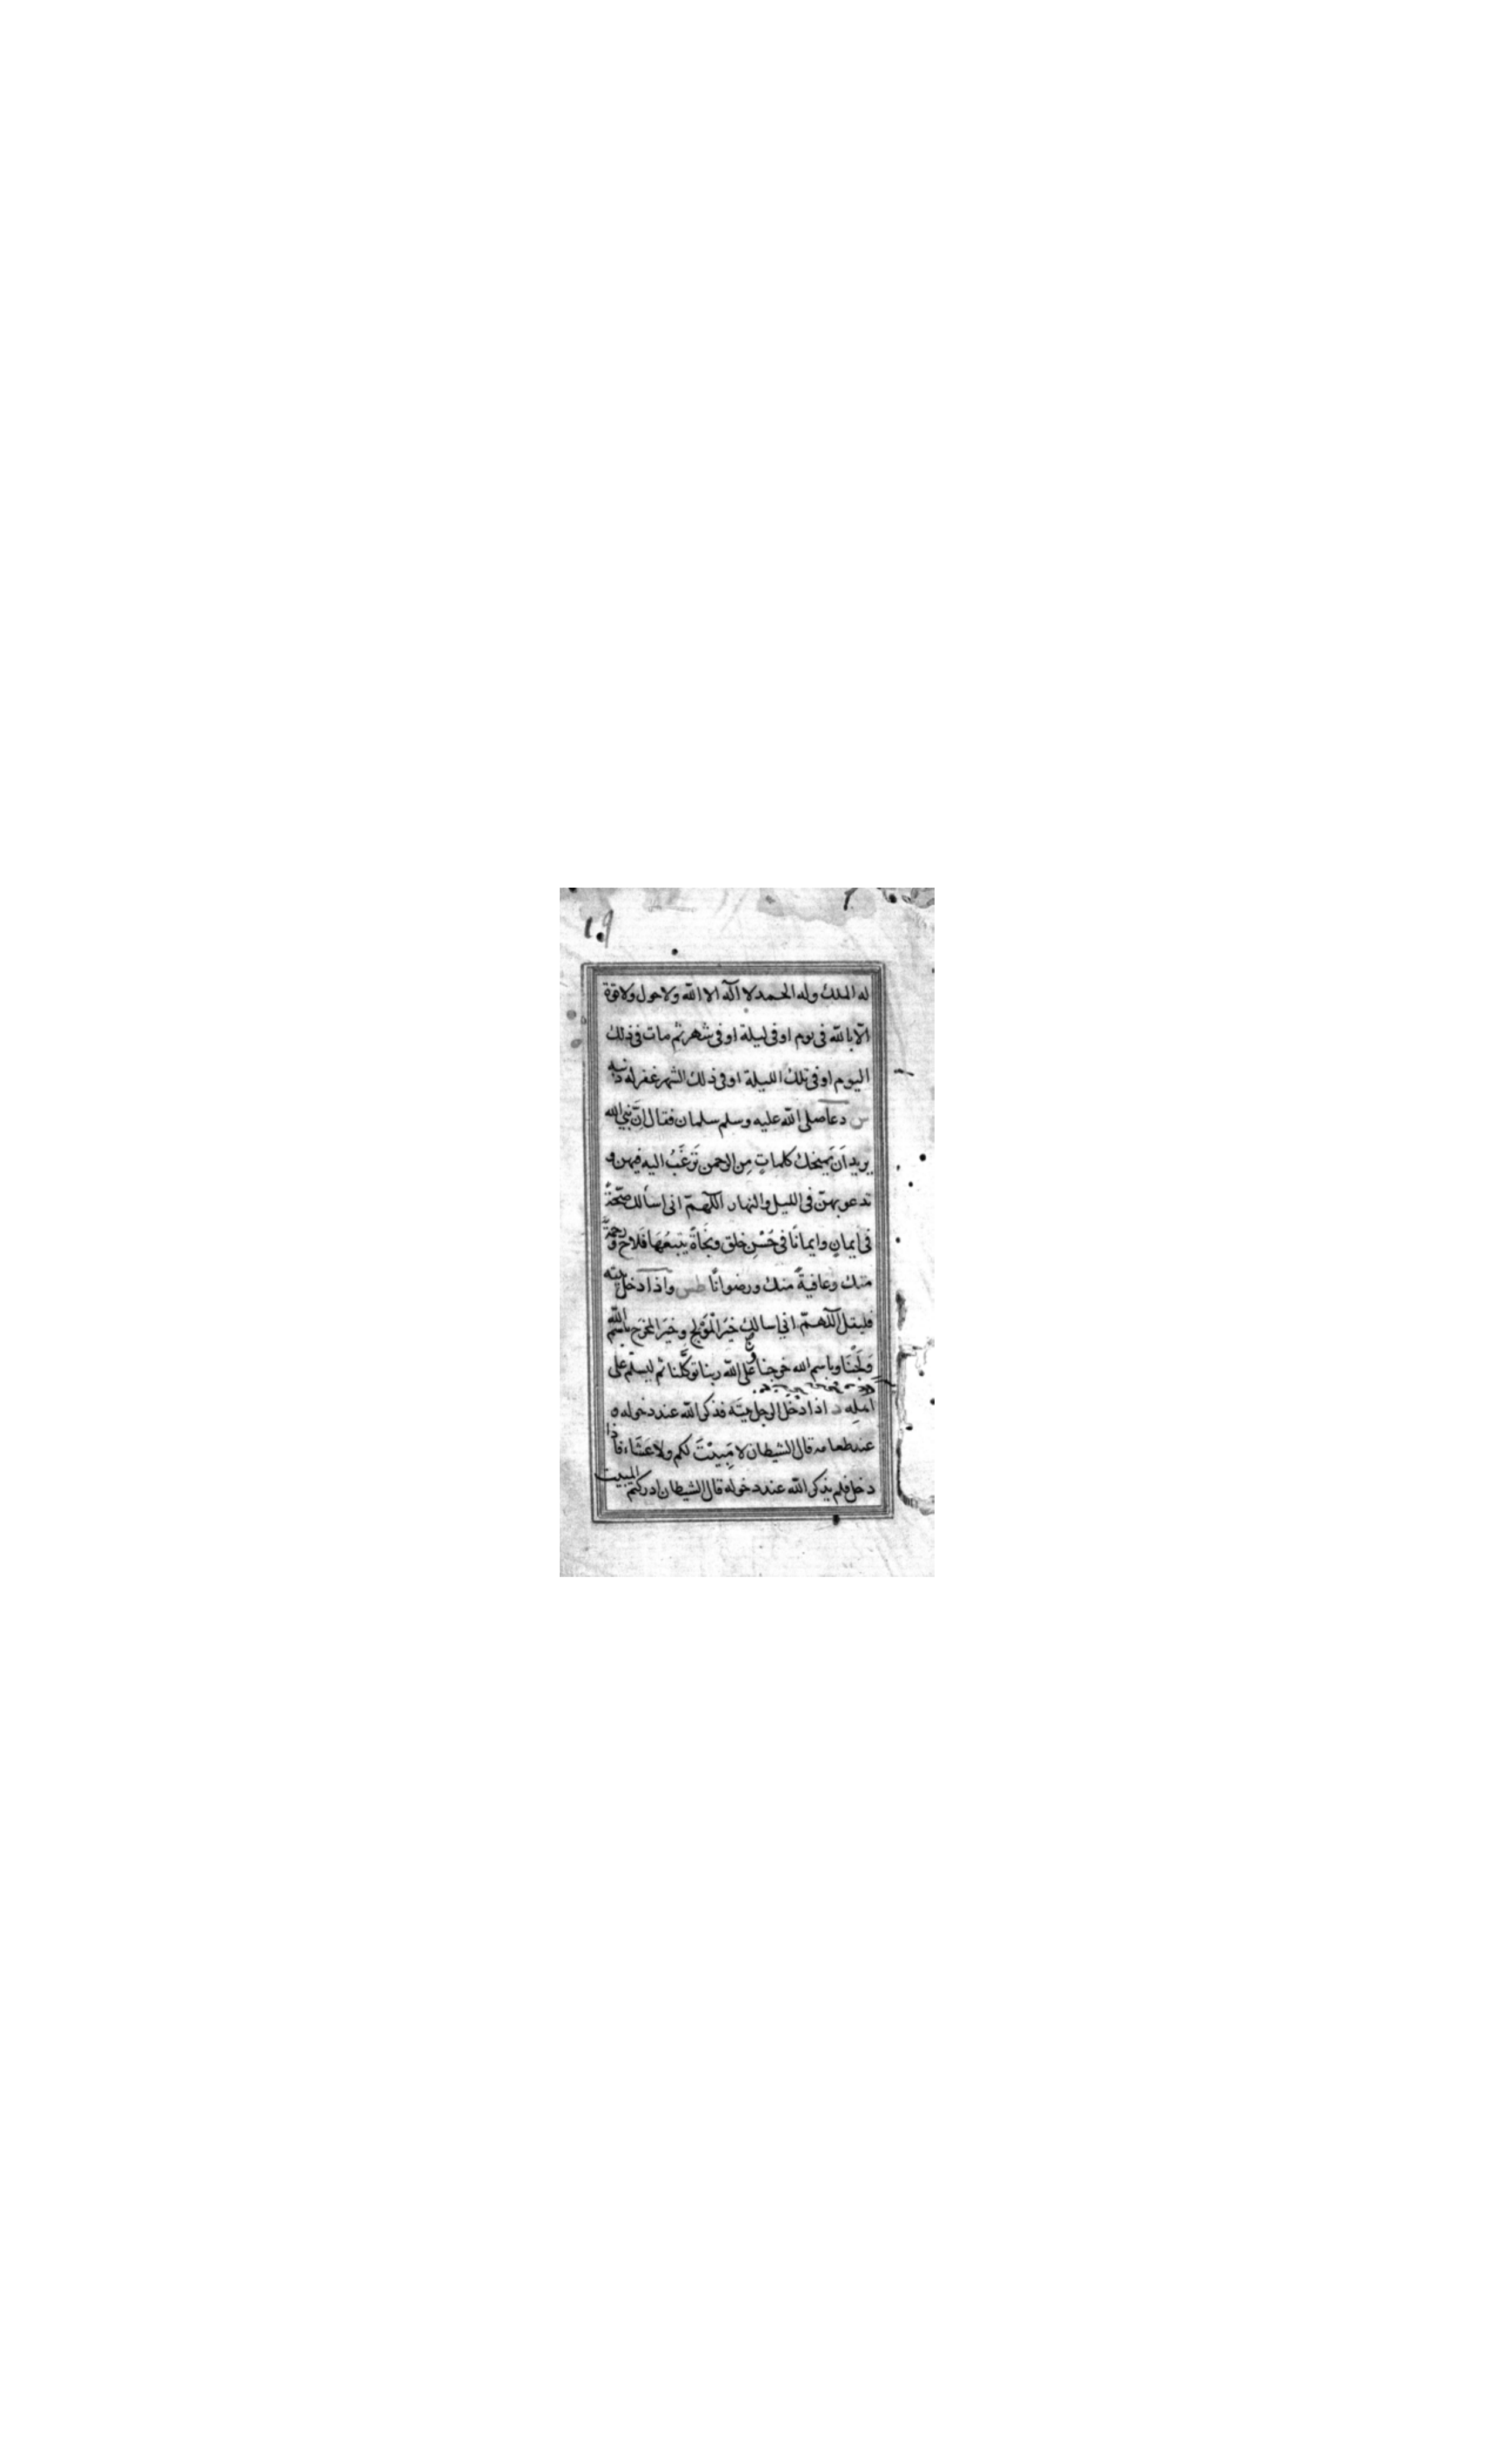 ١٩
له الملك وله الحمد لا اله الا الله ولا حول ولا قوة
الا بالله فى يوم او فى ليلة او فى شهر ثم مات فى ذلك
اليوم او فى تلك الليلة او فى ذلك الشهر غفر له ذنبه
س دعا صلى الله عليه وسلم سلمان فقال اِنّ نبي الله
يريد اَن يَمنحك كلماتٍ مِن الرحمن تَرغَّبُ اليه فيهن و
تدعو بهنّ فى الليل والنهار اللهمّ انى اسألك صحّةً
فى ايمانٍ وايمانًا فى حُسْنِ خلق ونجَاةً يتبعُهَا فَلاح ورحمةً
منك وعافيةً منك ورضوانًا طس واذا دخل بيته
فليقل اللهمّ انى اسالك خيَر الْمَوْلَجِ وخيَر المخرج باسم الله
وَلَجْنَا وباسم الله خرجنا وعلى الله ربنا توكَّلنا ثم ليسلّم على
اهله د اذا دخَل الرجل بيتَه فذكر الله عند دخوله و
عند طعامه قال الشيطان لا مَبِيْتَ لكم ولا عَشَاء فاذا
دخل فلم يذكر الله عند دخوله قال الشيطان ادركتم المبيت